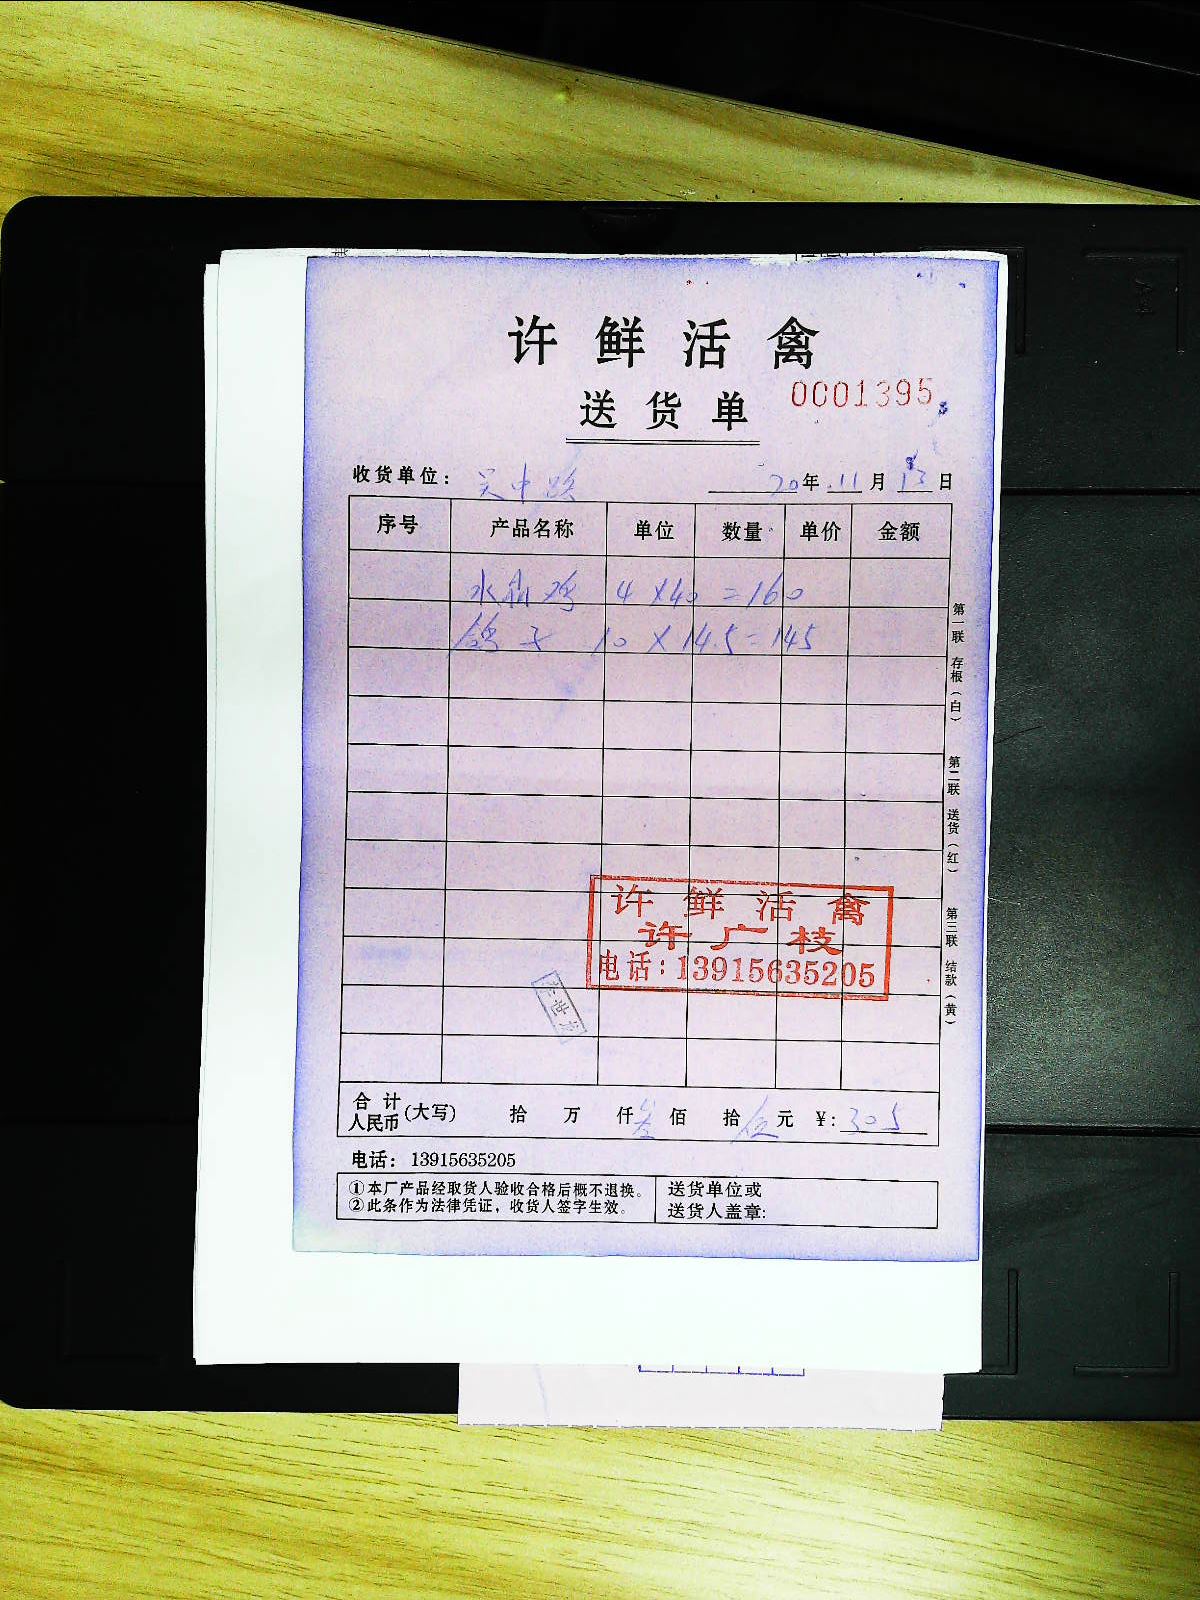 许鲜活禽
送货单
0001395
收货单位: 吴中路 20年11月13日
序号 产品名称 单位 数量 单价 金额
水鸡 4×40=160
鸽子 10×14.5=145
第一联 存根(白)
第二联 送货(红)
第三联 结款(黄)
许鲜活禽
许广枝
电话:13915635205
世
合计人民币(大写) 拾 万 仟叁佰 拾伍元 ¥:305
电话: 13915635205
①本厂产品经取货人验收合格后概不退换。
②此条作为法律凭证,收货人签字生效。
送货单位或
送货人盖章: